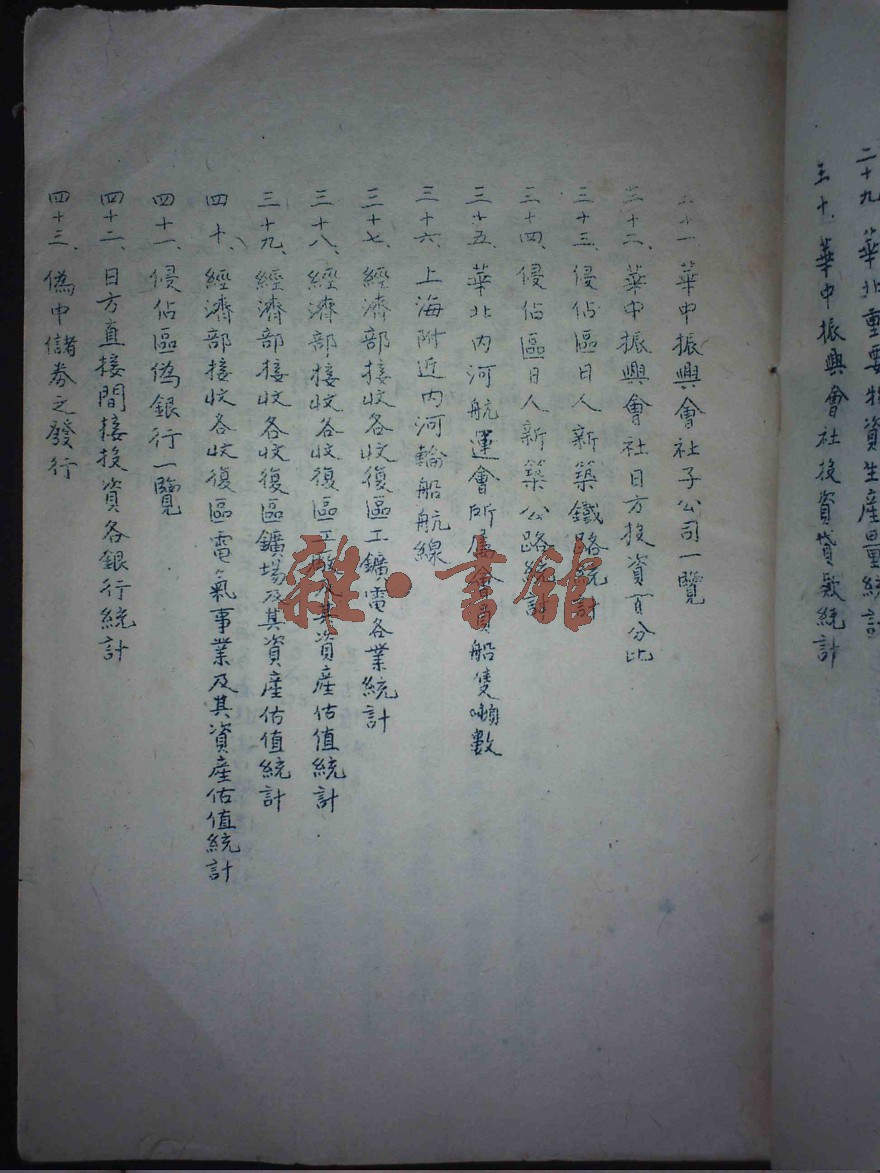 二十九、華北重要物資生產量統計
三十、華中振興會社投資貸款統計
三十一、華中振興會社子公司一覽
三十二、華中振興會社日方投資百分比
三十三、侵佔區日人新築鐵路統計
三十四、侵佔區日人新築公路統計
三十五、華北內河航運會所屬會員船隻噸數
三十六、上海附近內河輪船航線
三十七、經濟部接收各收復區工鑛電各業統計
三十八、經濟部接收各收復區工廠及其資產估值統計
三十九、經濟部接收各收復區鑛場及其資產估值統計
四十、經濟部接收各收復區電氣事業及其資產估值統計
四十一、侵佔區偽銀行一覽
四十二、日方直接間接投資各銀行統計
四十三、偽中儲券之發行
雜·書館